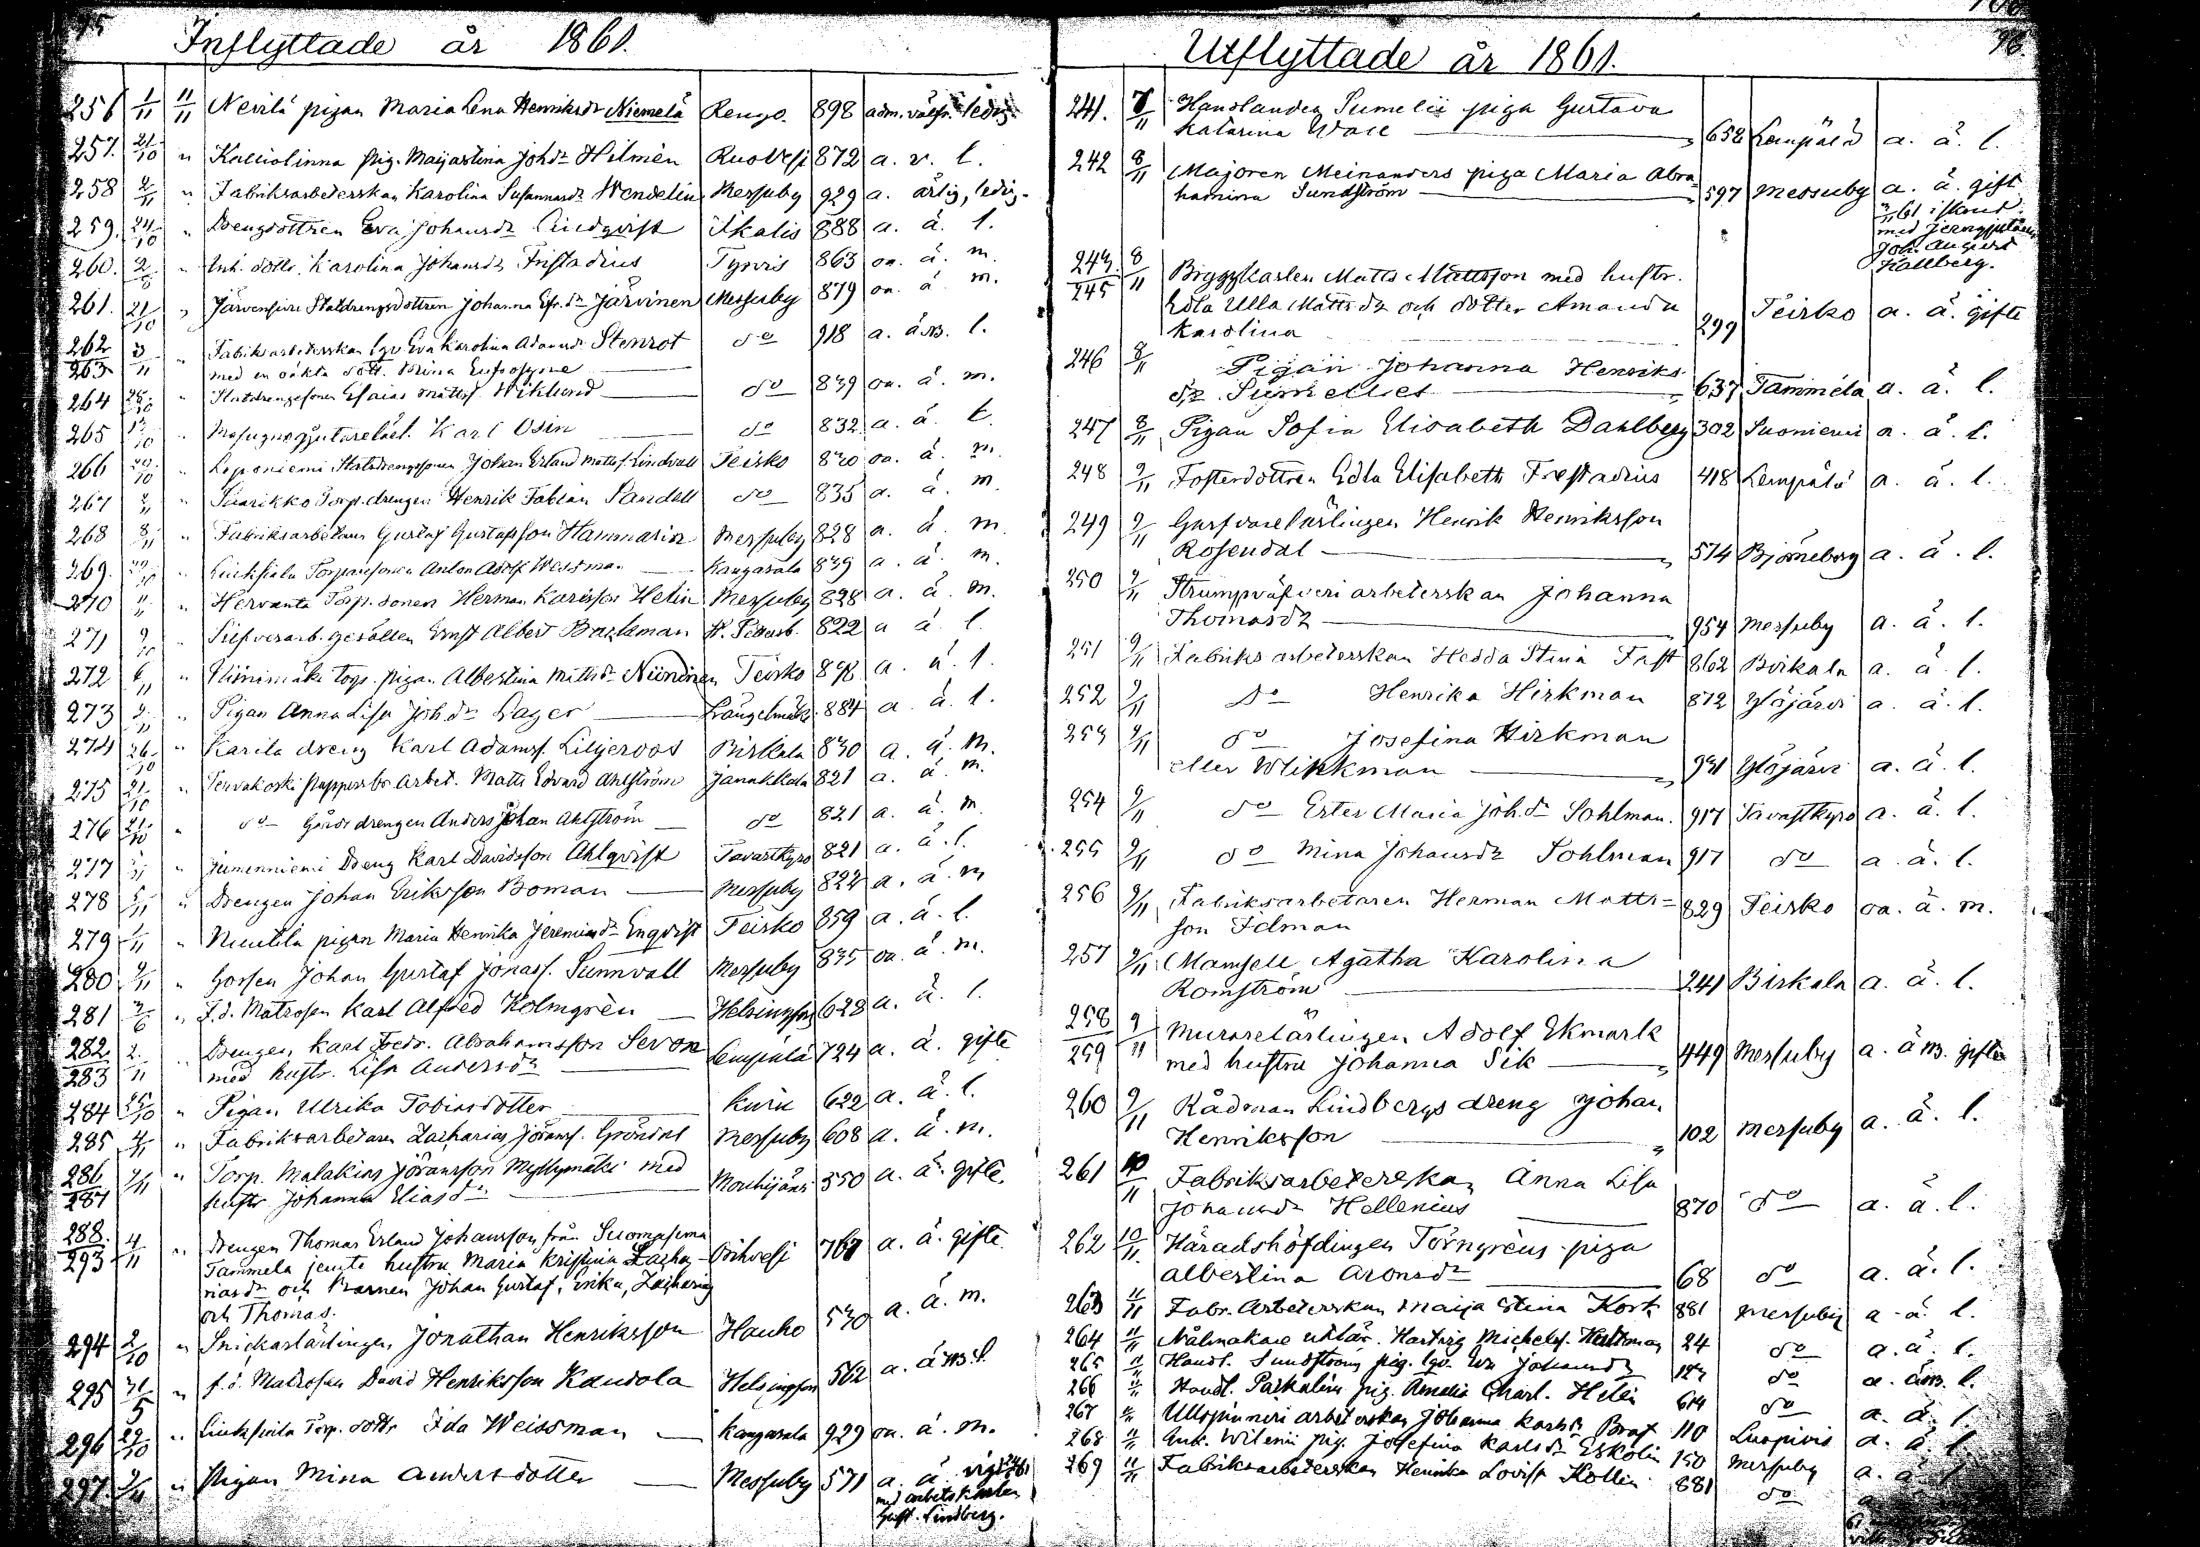 95
Inflyttade år 1861.
256 1/11 11/11 Nevilä pigan Maria Lena Henriksdr Niemelä Rengo. 898 adm. välfr. ledig.
257. 21/10 " pig. Majastina Johdr Hilmén Ruovesi 872 a. v. l.
258 2/11 " Fabriksarbeterskan Karolina Susannasdr Wendelin Messuby 929 a. ärlig, ledig.
259. 24/10 " Drengdottren Eva Johansdr Lindqvist Ikalis 888 a. ä. l.
260. " Inh. dottr. Karolina Johansdr Fristadius Tyrvis 863 oa. ä. m.
261. 21/10 " Statdrengsdottren Johanna Efr. dr Järvinen Messuby 879 oa. ä. m.
262 3/11 " Fabriksarbeterskan Eva Karolina Adamsdr Stenrot do 918 a. äns. l.
263 med en oäkta dott. Mina Eufrosyne
264 " Statdrengssonen Esaias Mattsf. Wiklund do 839 oa. ä. m.
265 " Karl Osin do 832 a. ä. l.
266 " Loponiemi Statdrengssonen Johan Erland Mattsf. Lindvall Teisko 830 oa. ä. m.
267 " Torp. drengen Henrik Fabian Sandell do 835 a. ä. m.
268 8/11 " Fabriksarbetaren Gustaf Gustafsson Hammarin Messuby 828 a. ä. m.
269. " Liuksiala Torparesonen Anton Adolf Weissman Kangasala 839 a. ä. m.
270 " Hervanta Torp. sonen Herman Karlsson Helin Messuby 828 a. ä. m.
271 " Silfverarb. gesällen Ernst Albert Barkman St. Petersb. 822 a. ä. l.
272 6/11 " torp. pigan Albertina Mattsdr Niindinen Teisko 898 a. ä. l.
273 " Pigan Anna Lisa Joh.dr Lager Längelmäki 884 a. ä. l.
274 26/10 " Karila dreng Karl Adamsf. Liljeroos Birkala 830 a. ä. m.
275 21/10 " Tervakoski pappersbr. arbet. Matts Edvard Ahlström Janakkala 821 a. ä. m.
276 21/10 " do Gårdsdrengen Anders Johan Ahlström do 821 a. ä. m.
277 " Jumenniemi Dreng Karl Davidsson Ahlqvist Tavastkyro 821 a. ä. l.
278 5/11 " Drengen Johan Eriksson Boman Messuby 822 a. ä. m
279 1/11 " Nuutila pigan Maria Henrika Jeremiasdr Enqvist Teisko 859 a. ä. l.
280 9/11 " Gossen Johan Gustaf Jonass. Sunnvall Messuby 835 oa. ä. m.
281 3/6 " F.d. Matrosen Karl Alfred Holmgrén Helsingfors 628 a. ä. l.
282 2/11 " Drengen Karl Fredr. Abrahamsson Sevon Lempäälä 724 a. ä. gifte
283 med hustr. Lisa Andersdr
284 25/10 " Pigan Ulrika Tobiasdotter Kuru 622 a. ä. l.
285 4/11 " Fabriksarbetaren Zacharias Göransf. Gröndal Messuby 608 a. ä. m.
286 7/11 " Torp. Malakias Göransson Myllymäki med Mouhijärvi 550 a. ä. gifte.
287 hustr. Johanna Eliasdr
288. 4/11 " Drengen Thomas Erland Johansson från Suomasema Orihvesi 767 a. ä. gifte
293 Tammela jemte hustru Maria Kristina Zacha-
riasdr och Barnen Johan Gustaf, Erika, Zacharias
och Thomas.
294 2/10 " Snickarlärlingen Jonathan Henriksson Hauho 530 a. ä. m.
295 31/5 " f.d. Matrosen David Henriksson Kandola Helsingfors 562 a. äns. l.
296 29/10 " Liuksiala Torp. dottr Ida Weissman Kangasala 929 oa. ä. m.
297. " Pigan Mina Andersdotter Messuby 571 a. ä.
med arbetskarlen
Gust. Lindberg.
96
Utflyttade år 1861.
241. 7/11 Handlanden Sumelii piga Gustava
Katarina Wass 658 Lempälä a. ä. l.
242 8/11 Majoren Meinanders piga Maria Abra-
hamina Sundström 597 Messuby a. ä. gift
med
Joh. August
Hallberg.
243. 8/11 Bryggkarlen Matts Mattsson med hustr.
245 Edla Ulla Mattsdr och dotter Amanda
Karolina 299 Teisko a. ä. gifte
246 8/11 Pigan Johanna Henriks-
dr Sumelles 637 Tammela a. ä. l.
247 8/11 Pigan Sofia Elisabeth Dahlberg 302 Suoniemi a. ä. l.
248 9/11 Fosterdottren Edla Elisabeth Frestadius 418 Lempälä a. ä. l.
249 9/11 Garfvarelärlingen Henrik Henriksson
Rosendal 574 Björneborg a. ä. l.
250 9/11 Strumpväfveriarbeterskan Johanna
Thomasdr 954 Messuby a. ä. l.
251 9/11 Fabriksarbeterskan Hedda Stina Fast 862 Birkala a. ä. l.
252 9/11 do Henrika Hirkman 872 Ylöjärvi a. ä. l.
253 9/11 do Josefina Hirkman
eller Wlikkman 931 Ylöjärvi a. ä. l.
254 9/11 do Ester Maria Joh.dr Sohlman. 917 Tavastkyro a. ä. l.
255 9/11 do Mina Johansdr Sohlman 917 do a. ä. l.
256 9/11 Fabriksarbetaren Herman Matts-
son Idman 829 Teisko oa. ä. m.
257 9/11 Mamsell Agatha Karolina
Romström 241 Birkala a. ä. l.
258 9/11 Murarelärlingen Adolf Ekmark
259 med hustru Johanna Sik 449 Messuby a. äns. gifte
260 9/11 Rådman Lindbergs dreng Johan
Henriksson 102 Messuby a. ä. l.
261 10/11 Fabriksarbeterskan Anna Lisa
Johansdr Hellenius 870 do a. ä. l.
262 10/11 Häradshöfdingen Törngréns piga
Albertina Aronsdr 68 do a. ä. l.
263 11/11 Fabr. Arbeterskan Maija Stina Kork 881 Messuby a. ä. l.
264 11/11 Nålmakare Hartvig Michelsf. 24 do a. ä. l.
265 11/11 Handl. Sundströms pig. Eva Johansdr 123 do a. äns. l.
266 11/11 Handl. pig. Amalia Charl. Helin 614 do a. ä. l.
267 11/11 Ullspinneri arbeterskan Johanna Karlsdr Braf 110 Luopivis a. ä. l.
268 11/11 Enk. Wilenii pig. Josefina Karlsdr Eskolin 150 Messuby a. ä. l.
269 11/11 Fabriksarbeterskan Henrika Lovisa Kollin 881 do